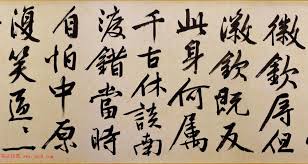 徽欽辱但
徽欽既反
此身何属
千古休談南
渡錯當時
自怕中原
復笑區